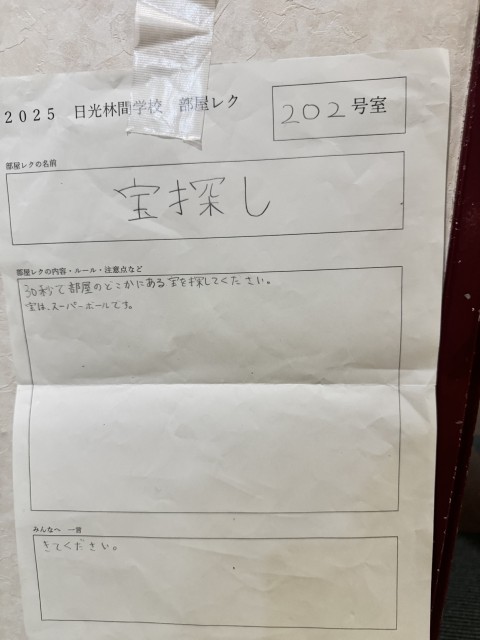 2025 日光林間学校 部屋レク
202号室
部屋レクの名前
宝探し
部屋レクの内容・ルール・注意点など
30秒で部屋のどこかにある宝を探してください。
宝は、スーパーボールです。
みんなへ 一言
きてください。